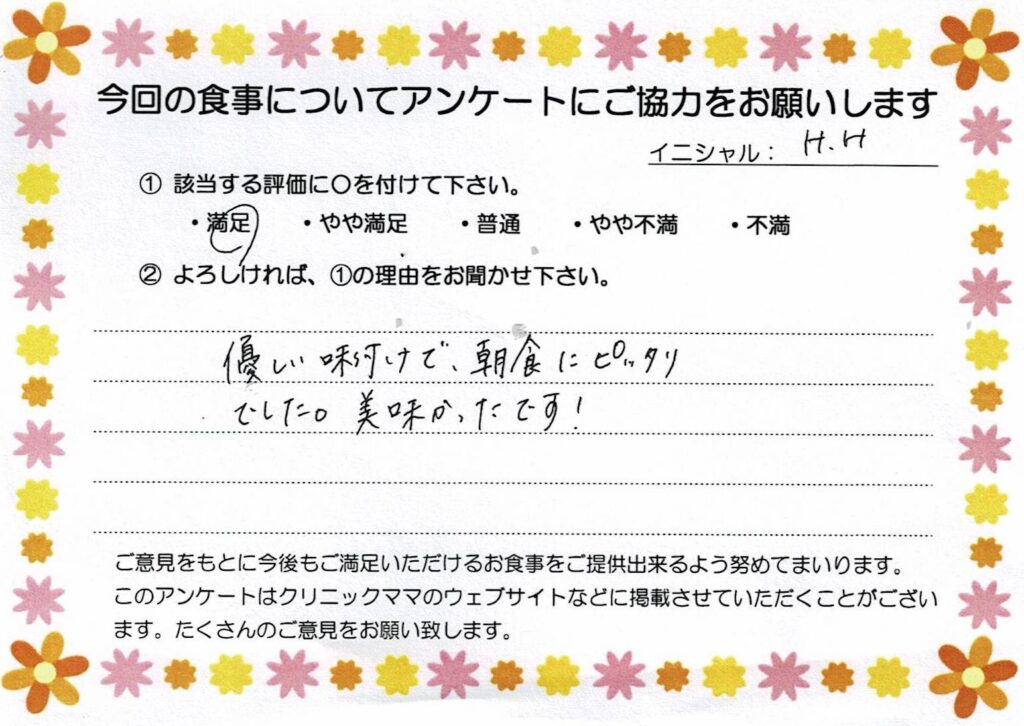 今回の食事についてアンケートにご協力をお願いします
イニシャル： H.H
① 該当する評価に〇を付けて下さい。
・満足 ・やや満足 ・普通 ・やや不満 ・不満
② よろしければ、①の理由をお聞かせ下さい。
優しい味付けで、朝食にピッタリ
でした。美味かったです！
ご意見をもとに今後もご満足いただけるお食事をご提供出来るよう努めてまいります。
このアンケートはクリニックママのウェブサイトなどに掲載させていただくことがござい
ます。たくさんのご意見をお願い致します。